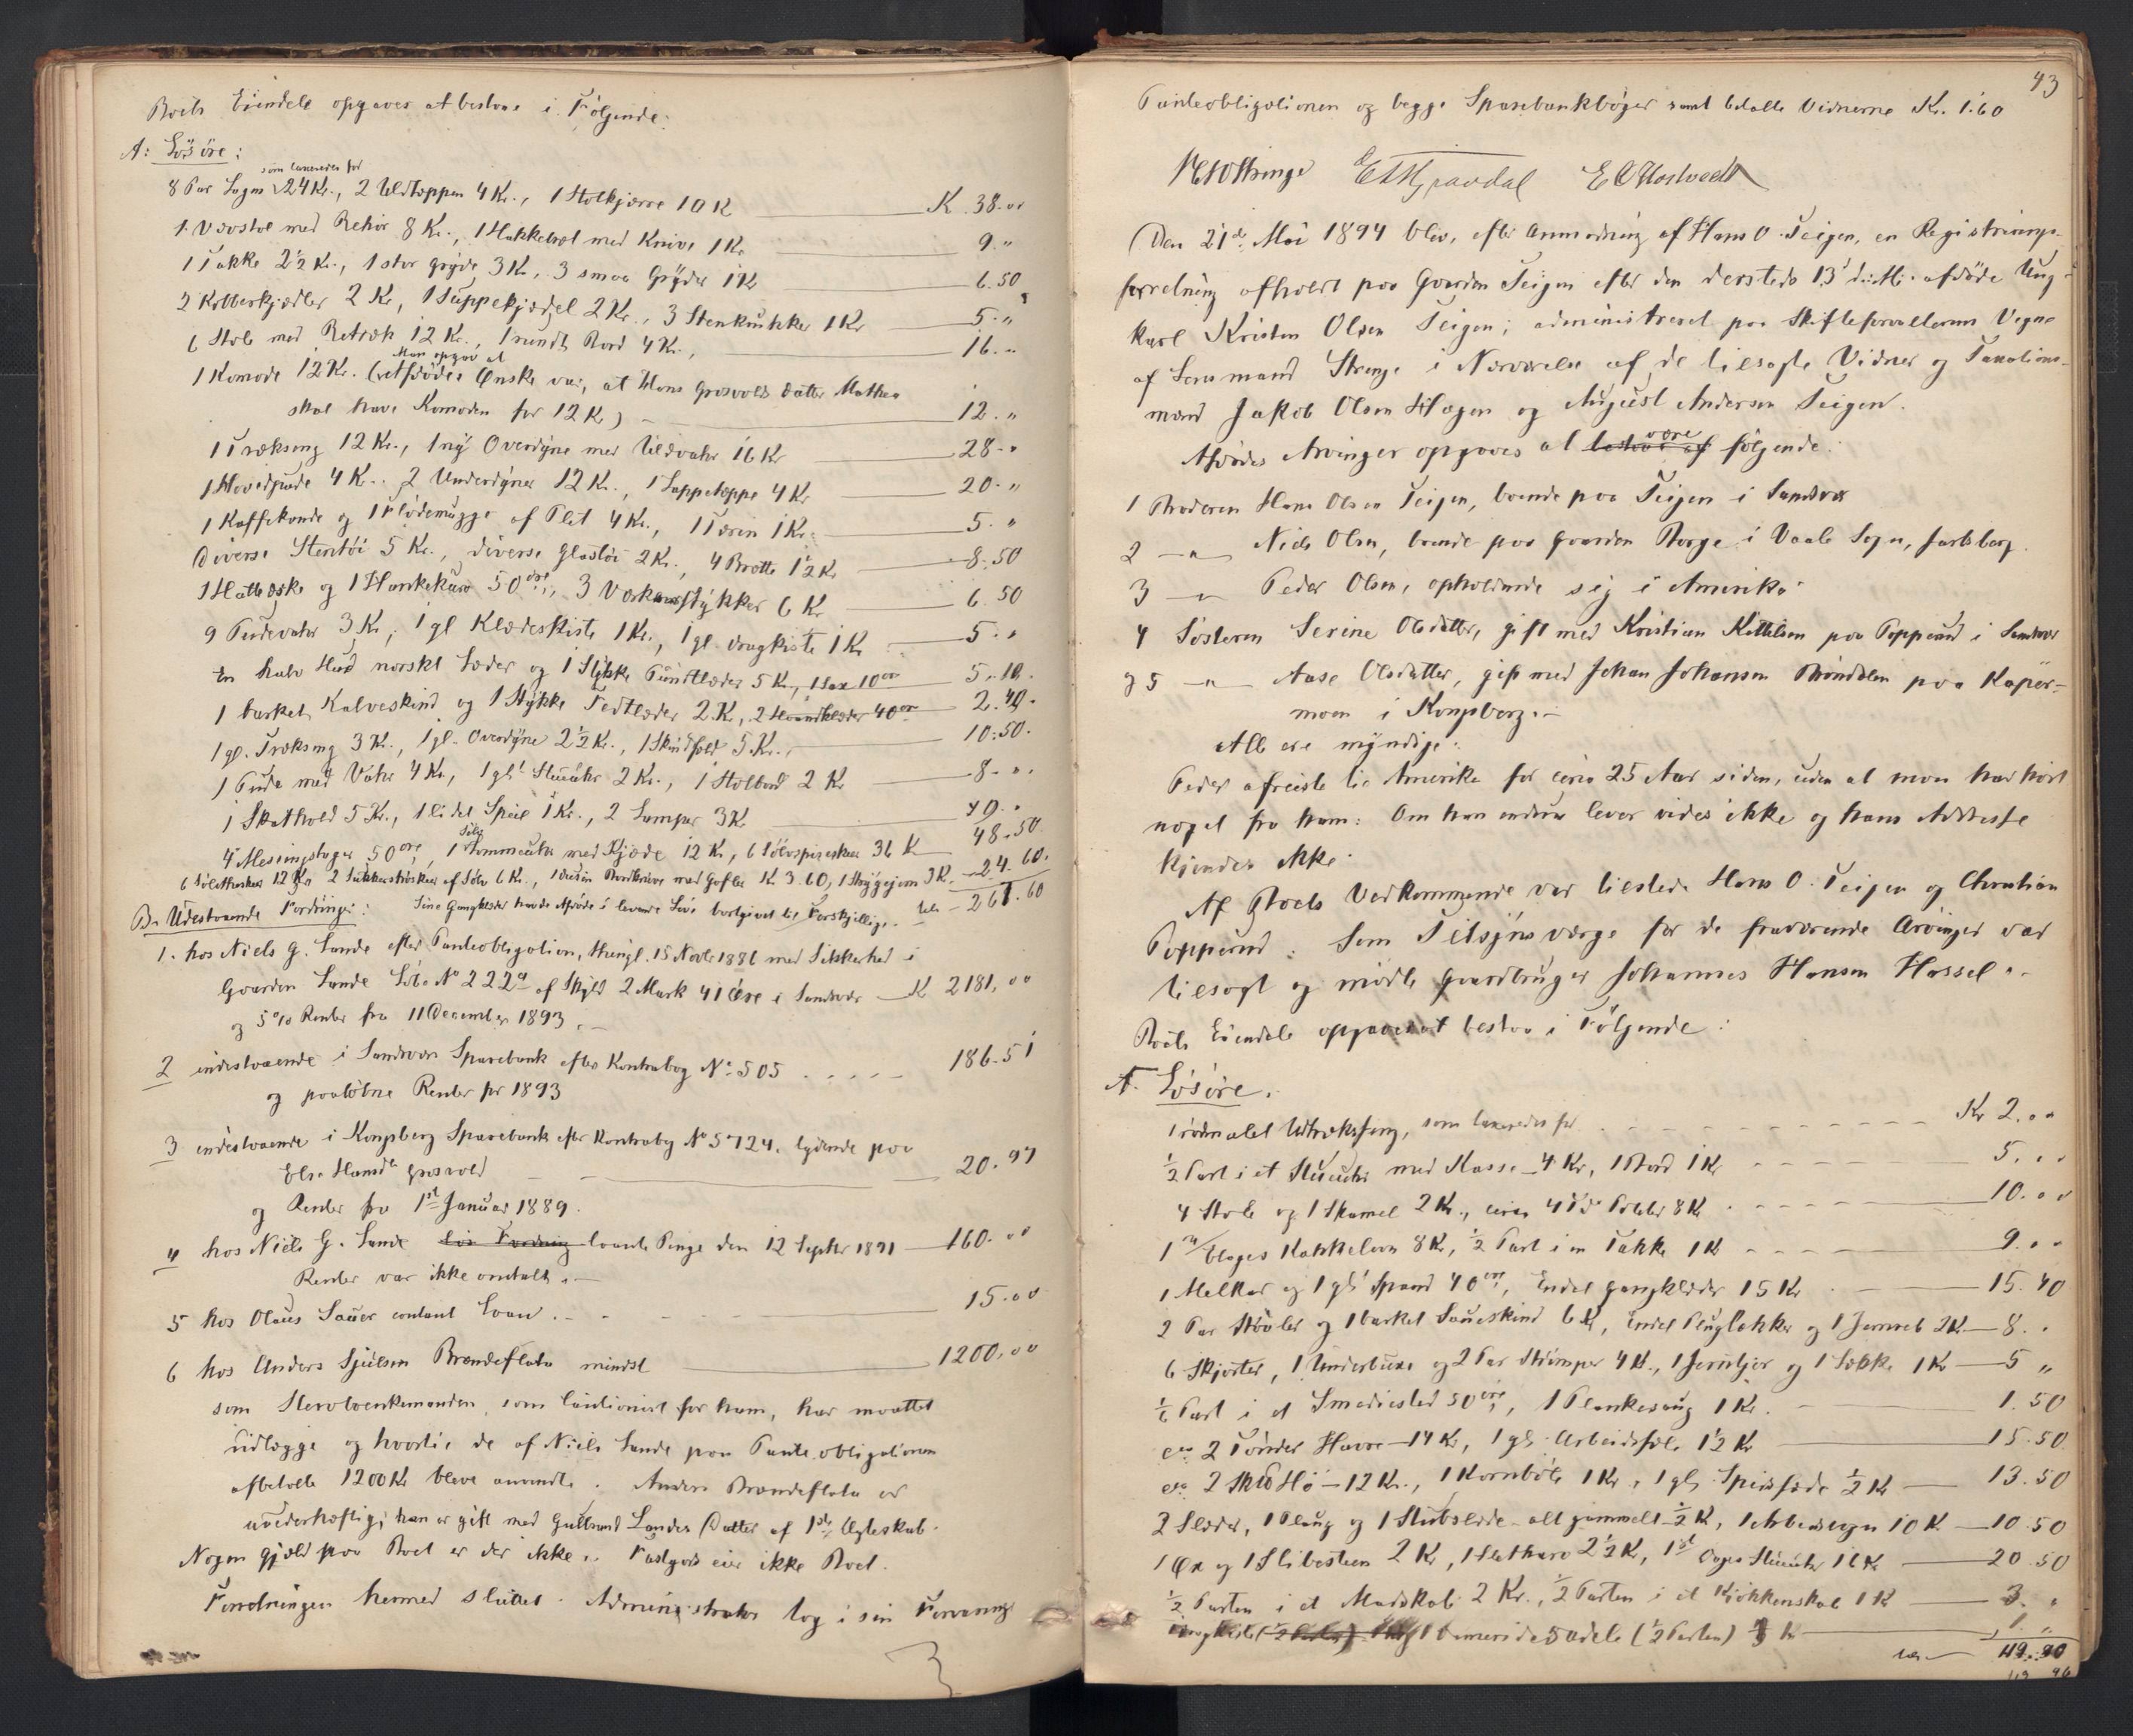 Boets Eiendele opgaves at bestaae i Følgende:
A: Løsøre:
som taxeredes for
8 Par Lagen 24 Kr., 2 Uldtæpper 4 Kr., 1 Stolkjærre 10 K K. 38.00
1 Vævstol med Behør 8 Kr., 1 Hakkebræt med Knive 1 Kr 9."
1 Takke 2½ Kr., 1 stor Gryde 3 Kr, 3 smaa Gryder 1 K 6.50
2 Kobberkjædler 2 Kr, 1 Suppekjædel 2 Kr., 3 Stenkrukker 1 Kr 5."
6 Stole med Betræk 12 Kr., 1 rundt Bord 4 Kr., 16."
Man opgav at
1 Komode 12 Kr. (Afdødes Ønske var, at Hans Grosvolds Datter Mathea
skal have Komoden for 12 K) 12."
1 Træksæng 12 Kr., 1 ny Overdyne med Uldvahr 16 Kr 28."
1 Hovedpude 4 Kr., 2 Underdyner 12 K., 1 Lappetæppe 4 Kr 20."
1 Kaffekande og 1 Flødemugge af Plet 4 Kr., 1 Terin 1 Kr. 5."
Diverse Stentøi 5 Kr., diverse Glastøi 2 Kr., 4 Brætte 1½ Kr 8.50
1 Hatteæske og 1 Hankekurv 50 øre, 3 Værkenstykker 6 Kr 6.50
9 Pudevahr 3 Kr, 1 gl Klædeskiste 1 Kr., 1 gl. Dragkiste 1 Kr 5."
En halv Hud norskt Læder og 1 Stykke Pundtlæder 5 K, 1 Sax 10 øre 5.10.
1 barket Kalveskind og 1 Stykke Fedtlæder 2 K, 2 Haandklæder 40 øre 2.40.
1 gl. Træksæng 3 Kr., 1 gl. Overdyne 2½ Kr., 1 Skindfeld 5 Kr., 10.50.
1 Pude med Vahr 4 Kr., 1 gl. Stueuhr 2 Kr., 1 Stolbord 2 K 8.".
1 Skathold 5 Kr., 1 lidet Speil 1 Kr., 2 Lamper 3 K
Sølv
4 Messingstager 50 øre, 1 Lommeuhr med Kjæde 12 K, 6 Sølvspiseskeer 36 K 48.50
6 Sølvtheskeer 12 Kr 2 Sukkerskeer af Sølv 6 K., 1 Dusin Bordknive med Gafler K. 3.60, 1 Strygejern 3 K. 24.60.
B. Udestaaende Fordringer: Sine Gangklæder havde Afdøde i levende Live bortgivet til Forskjellige. tils 261.60
1. hos Niels G. Lande efter Panteobligation, thingl. 15 Novbr 1886 med Sikkerhed i
Gaarden Lande Løbe No 222a af Skyld 2 Mark 41 Øre i Sandsvær K 2181,00
og 5% Renter fra 11 December 1893.
2 indestaaende i Sandsvær Sparebank efter Kontrabog No 505 186.51
og paaløbne Renter for 1893
3 indestaaende i Kongsberg Sparebank efter Kontrabog No 5724, lydende paa
Else Hansdtr Grosvold 20.97
og Renter fra 1st Januar 1889.
4 hos Niels G. Lande laante Penge den 12 Septbr 1891 160.00
Renter var ikke omtalt.
5 hos Olaus Sauer contant Laan. 15.00
6 hos Anders Sjulsen Brændeflata mindst 1200,00
som Stervboenkemanden, som Cautionist for ham, har maattet
udlægge og hvortil de af Niels Lande paa Panteobligationen
afbetalte 1200 Kr bleve anvendte. Anders Brændeflata er
uvederhæftig; han er gift med Gulbrand Landes Datter af 1ste Ægteskab.
Nogen Gjæld paa Boet er der ikke. Fastgods eier ikke Boet.
Forretningen hermed sluttet. Administrator tog i sin Forvaring
43
Panteobligationen og begge Sparebankbøger samt betalte Vidnerne Kr. 1.60
E C Hostvedt
Den 21de Mai 1894 blev, efter Anmodning af Hans O. Teigen, en Registrerings-
forretning afholdt paa Gaarden Teigen efter den dersteds 13de ds. M. afdøde Ung-
karl Kristen Olsen Teigen; administreret paa Skifteforvalterens Vegne
af Lensmand Strenge i Nærværelse af de tilsagte Vidner og Taxations-
mænd Jakob Olsen Hagen og August Andersen Teigen.
Afdødes Arvinger opgaves at være følgende:
1 Broderen Hans Olsen Teigen, boende paa Teigen i Sandsvær
2 — " — Niels Olsen, boende paa Gaarden Borge i Vaale Sogn, Jarlsberg.
3 — " — Peder Olsen, opholdende sig i Amerika
4 Søsteren Serine Olsdatter, gift med Kristian Kittilsen paa Popperud i Sandsvær
og 5 — " — Aase Olsdatter, gift med Johan Johansen Throndalen paa Kaper-
moen i Kongsberg.
Alle ere myndige.
Peder afreiste til Amerika for circa 25 Aar siden, uden at man har hørt
noget fra ham: Om han endnu lever vides ikke og hans Addresse
kjendes ikke.
Af Boets Vedkommende var tilstede Hans O. Teigen og Christian
Popperud. Som Tilsynsværge for de fraværende Arvinger var
tilsagt og mødte Gaardbruger Johannes Hansen Hassel.
Boets Eiendele opgaves at bestaa i Følgende:
A. Løsøre.
1 rødmalet Udtræksseng, som taxeredes for Kr 2.00
½ Part i et Stueuhr med Kasse 4 Kr, 1 Bord 1 K 5.00
4 Stole og 1 Skamel 2 K., circa 4 Poteter 8 K 10.00
1 Kakkelovn 8 K, ½ Part i en Takke 1 K 9.00
1 Melkar og 1 gl. Spand 40 øre, Endel Gangklæder 15 Kr 15.40
2 Par Støvler og 1 barket Saueskind 6 K, Endel 2 K 8."
6 Skjorter, 1 Underbuxe og 2 Par Strømper 4 K., 1 og 1 Sække 1 K 5 "
1/6 Part i et Smediested 50 øre, 1 Plankesaug 1 Kr. 1.50
ca. 2 Tønder Havre 14 K, 1 gl. Arbeidssele 1½ K 15.50
ca. 2 Hø 12 K., 1 Kornbøle 1 K, 1 gl. ½ K 13.50
2 Slæder, 1 Ploug og 1 Stubslæde alt gammelt ½ K, 1 Arbeidsvogn 10 K 10.50
1 Øx og 1 Slibesteen 2 K, 1 Sletharv 2½ K, 1 Stueuhr 16 K 20.50
½ Parten i et Madskab 2 Kr., ½ Parten i et Kjøkkenskab 1 K 3."
(½ Parten) 1."